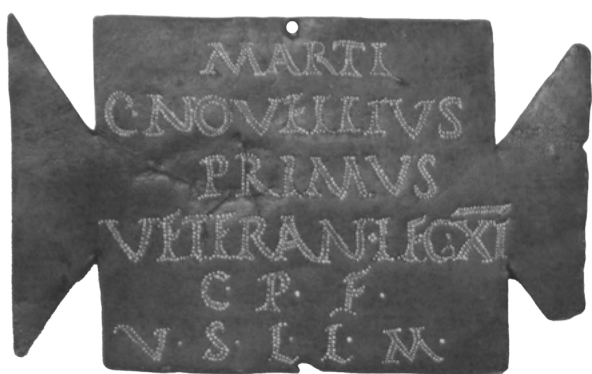 MARTI
C·NOVELLIVS
PRIMVS
VETERAN·LEG·XI
C·P·F·
V·S·L·L·M·